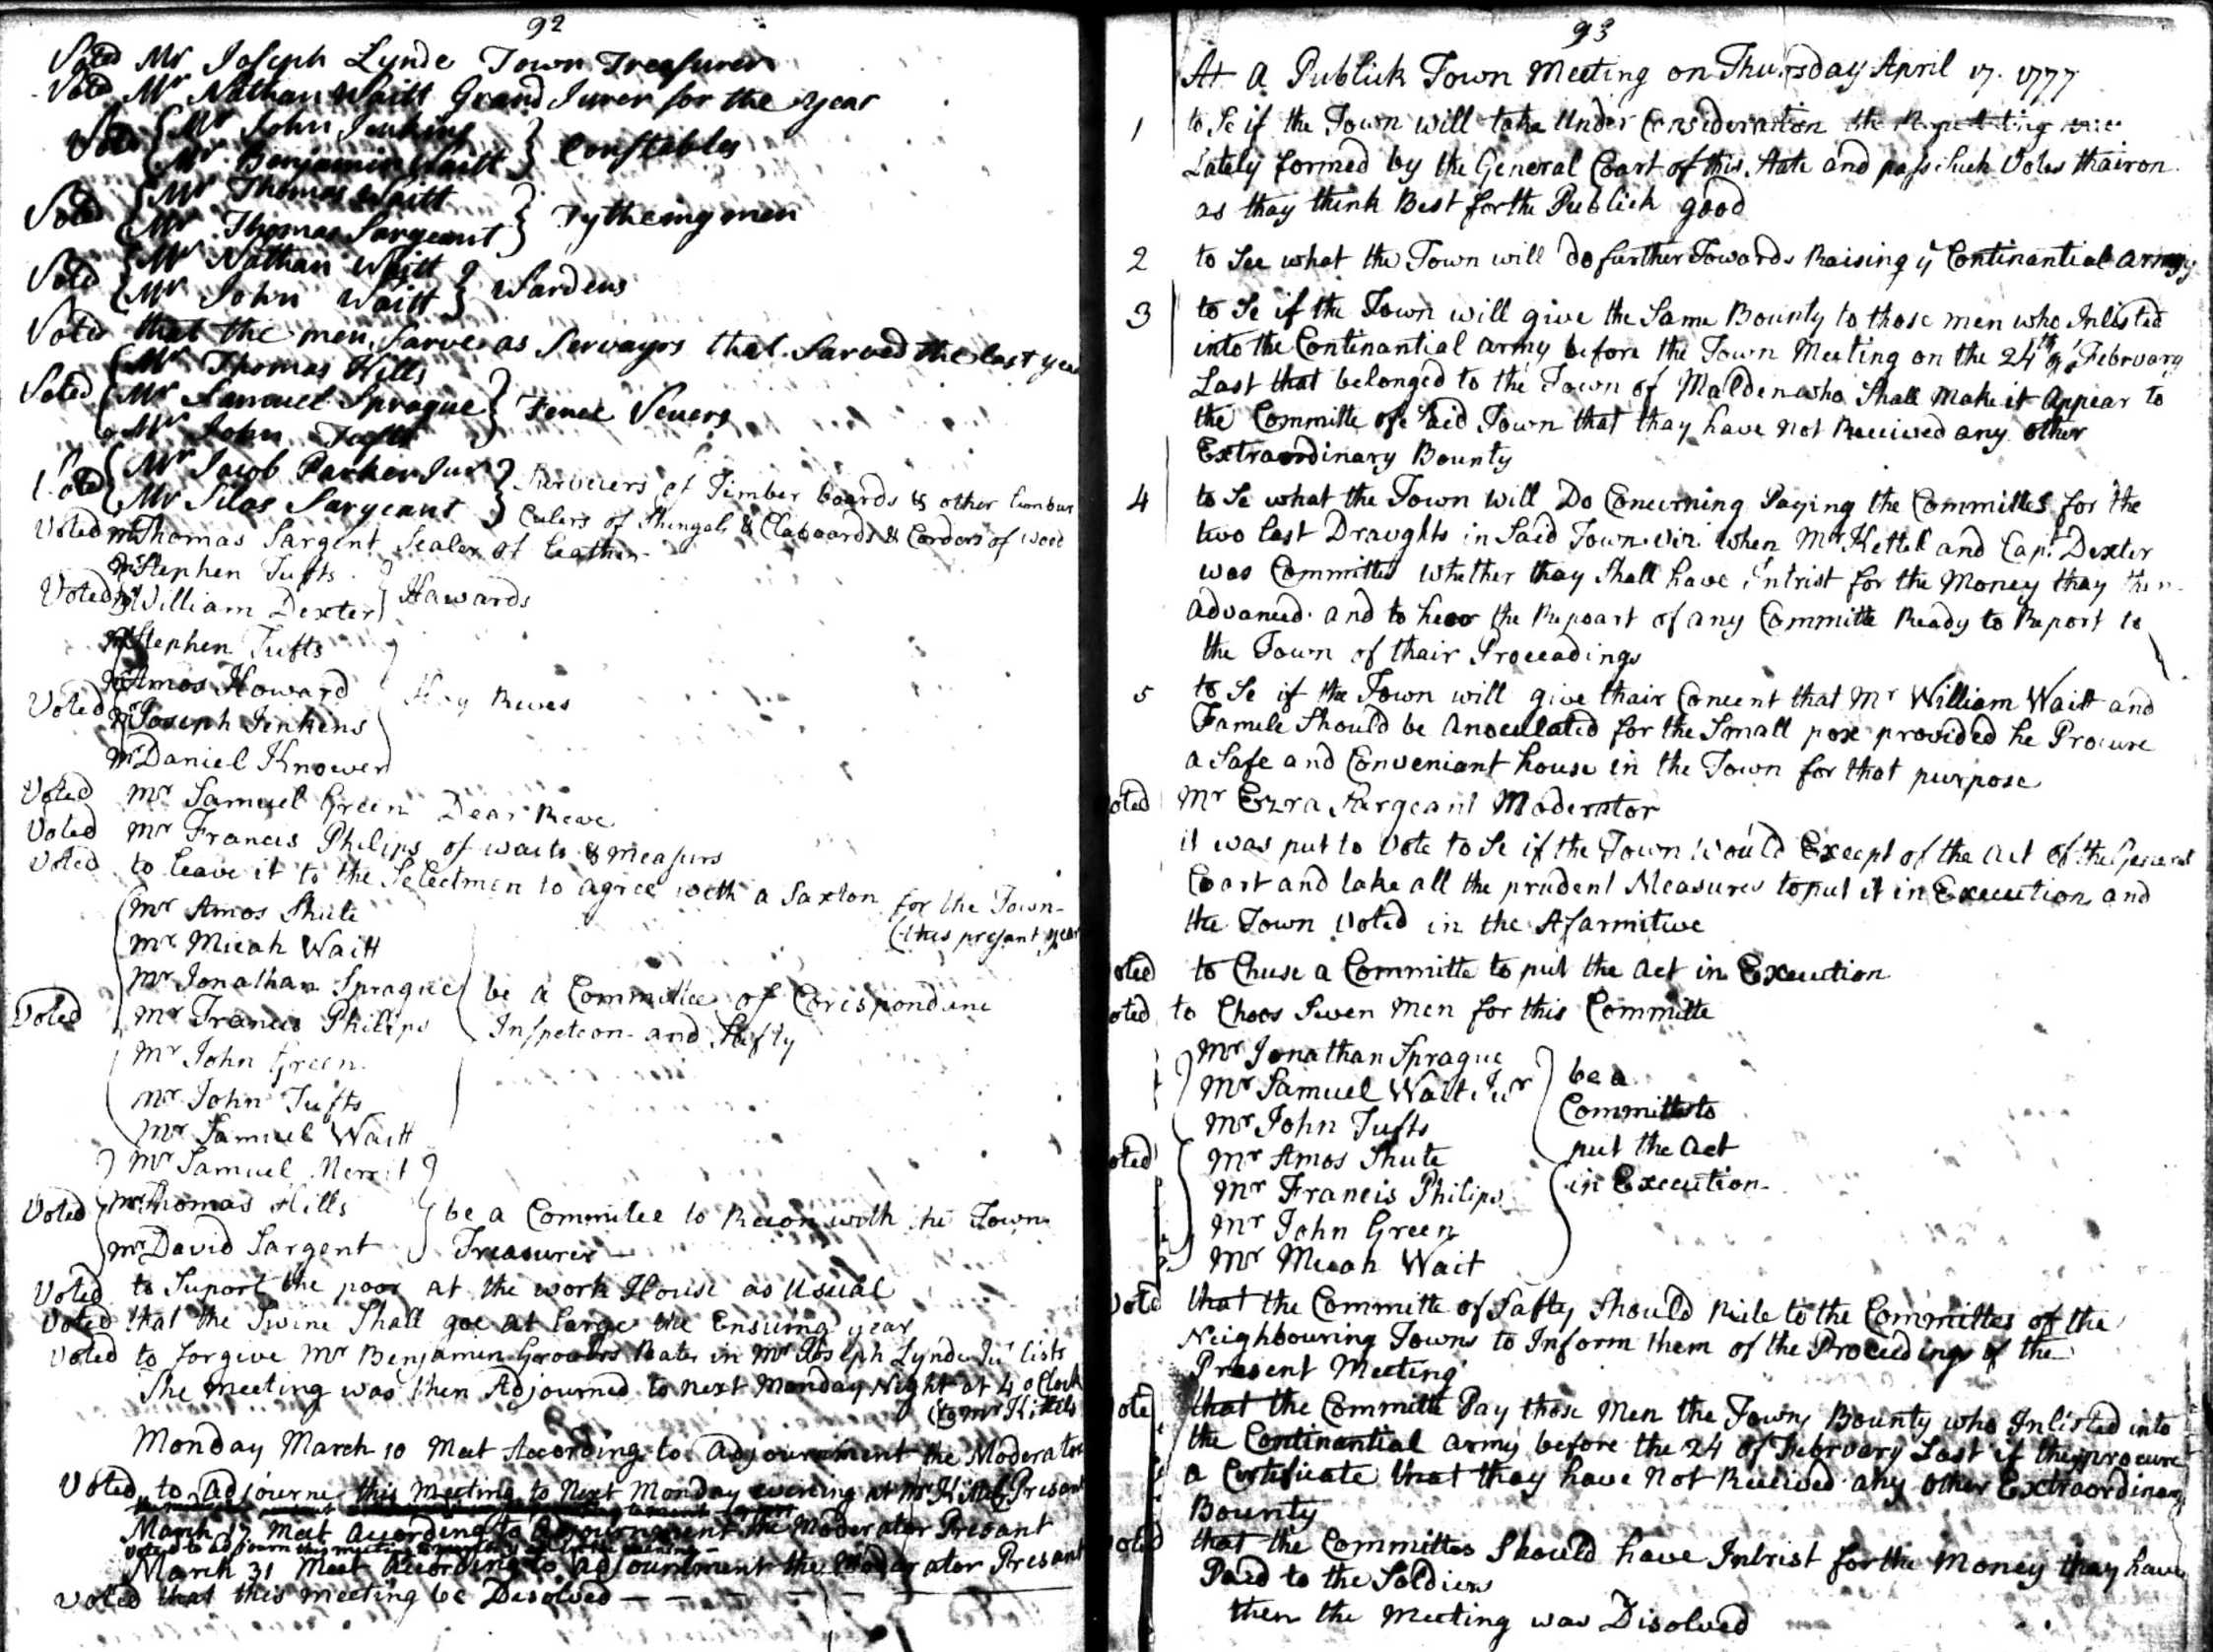 92
Voted Mr Joseph Lynde Town Treasurer
Voted Mr Nathan Waitt Grand Jurer for the year
Voted Mr John Jenkins
Mr Benjamin Waitt Constables
Voted Mr Thomas Waitt
Mr Thomas Sargeant Tytheingmen
Voted Mr Nathan Waitt
Mr John Waitt Wardens
Voted that the men Sarve as Servayrs that Sarved the last year
Mr Thomas Hills
Voted Mr Samuel Sprague Fence Veuers
Mr John Tufts
Voted Mr Jacob Parker Jur Surveiers of Timber boards & other lumbur
Mr Silas Sargeant Culers of Shingals & Claboards & Corders of wood
Voted mr Thomas Sargent Sealer of leather
mr Stephen Tufts
Voted mr William Dexter Hawards
mr Stephen Tufts
mr Amos Howard
Voted mr Joseph Jenkens Hog Reves
mr Daniel Knower
Voted mr Samuel Green Dear Reve
Voted mr Francis Philips of waits & measurs
Voted to leave it to the Selectmen to agree with a Saxton for the Town
(this presant year
mr Amos Shute
mr Micah Waitt
mr Jonathan Sprague be a Committee of Corespondenc
Voted mr Francis Philips Inspetcon and Safty
mr John Green
mr John Tufts
mr Samuel Waitt
mr Samuel Merrit
Voted mr Thomas Hills be a Commitee to Recon with the Town
mr David Sargent Treasurer
Voted to Suport the poor at the work House as Usual
Voted that the Swine Shall goe at large the Ensuing year
Voted to forgive Mr Benjamin Rates in Mr Joseph Lynde Jur lists
The meeting was then Adjourned to next Monday Night at 4 o Clock
(to mr Kittels
Monday March 10 Meet According to adjournment the Moderator
Voted to adjourne this meeting to Next Monday evening at Mr Kittels Presant
March 17 Meet according to adjournment the Moderator Presant
March 31 Meet according to adjournment the Moderator Presant
Voted that this meeting be Desolved
93
At a Publick Town Meeting on Thursday April 17. 1777
1 to Se if the Town will take Under Consideration the
Lately formed by the General Coart of this State and pass Such Votes thairon
as thay think Best for the Publick good
2 to See what the Town will do further Towards Raising ye Continantial army
3 to Se if the Town will give the Same Bounty to those men who Inlisted
into the Continantial army before the Town Meeting on the 24th of February
Last that belonged to the Town of Malden who Shall make it appear to
the Committe of Said Town that thay have not Received any other
Extraordinary Bounty
4 to Se what the Town will Do Concurning Paying the Committes for the
two last Draughts in Said Town viz when Mr Kettell and Capt Dexter
was Committes whether thay Shall have Intrist for the Money thay then
advanced and to hear the Repoart of any Committe Ready to Report to
the Town of thair Proceadings
5 to Se if the Town will give thair Concent that Mr William Waitt and
Famile Should be Anoculated for the Small pox provided he Procure
a Safe and Conveniant house in the Town for that purpose
oted Mr Ezra Sargeant Moderator
it was put to Vote to Se if the Town Would Except of the act of the General
Coart and take all the prudent Measures to put it in Execution and
the Town Voted in the Afarmitive
oted to Chuse a Committe to put the act in Execution
oted to Choos Seven Men for this Committe
Mr Jonathan Sprague
Mr Samuel Wait Jur be a
Mr John Tufts Committe to
oted Mr Amos Shute put the act
Mr Francis Philips in Execution
Mr John Green
Mr Micah Wait
Vote that the Committe of Safty Should Ride to the Committes of the
Neighbouring Towns to Inform them of the Proceedings of the
Present Meeting
ote that the Committe Pay those Men the Towns Bounty who Inlisted into
the Continantial army before the 24 of February Last if they procure
a Certificate that thay have Not Received any other Extraordinary
Bounty
oted that the Committes Should have Intrist for the Money thay have
Paid to the Soldiers
then the Meeting was Disolved